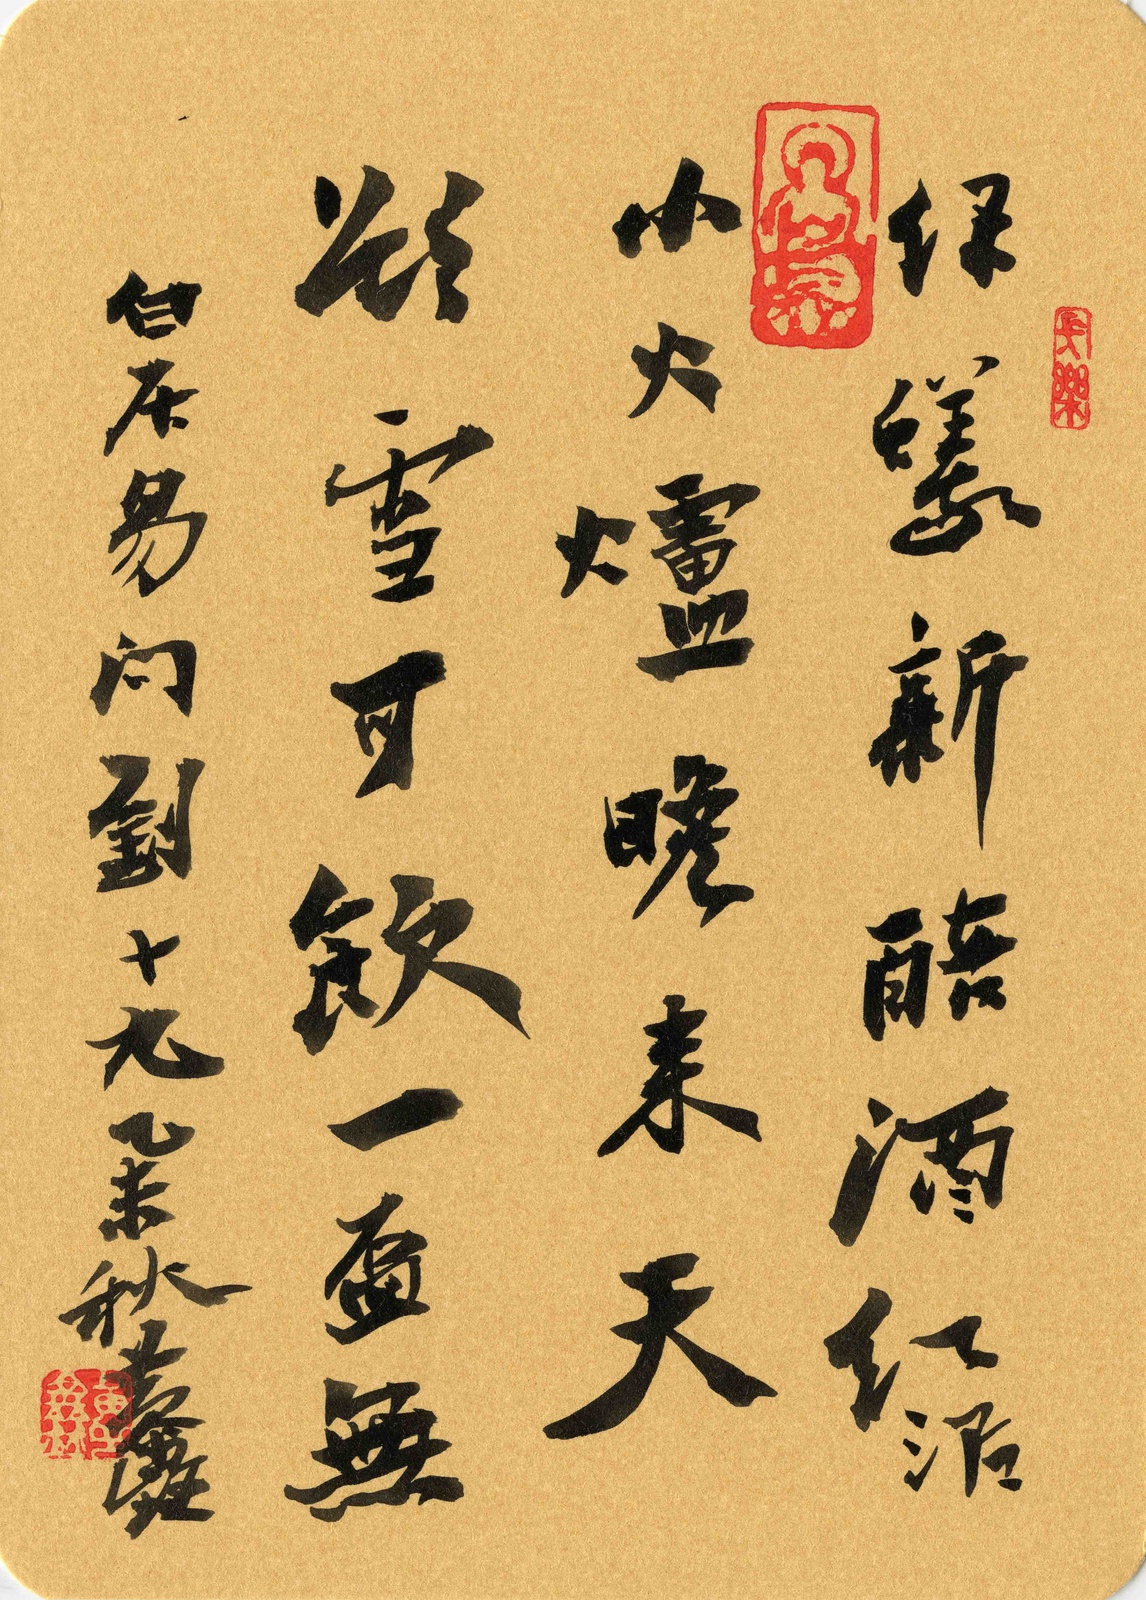 綠蟻新醅酒紅泥
小火爐晚來天
欲雪可飲一盃無
白居易問劉十九乙未秋